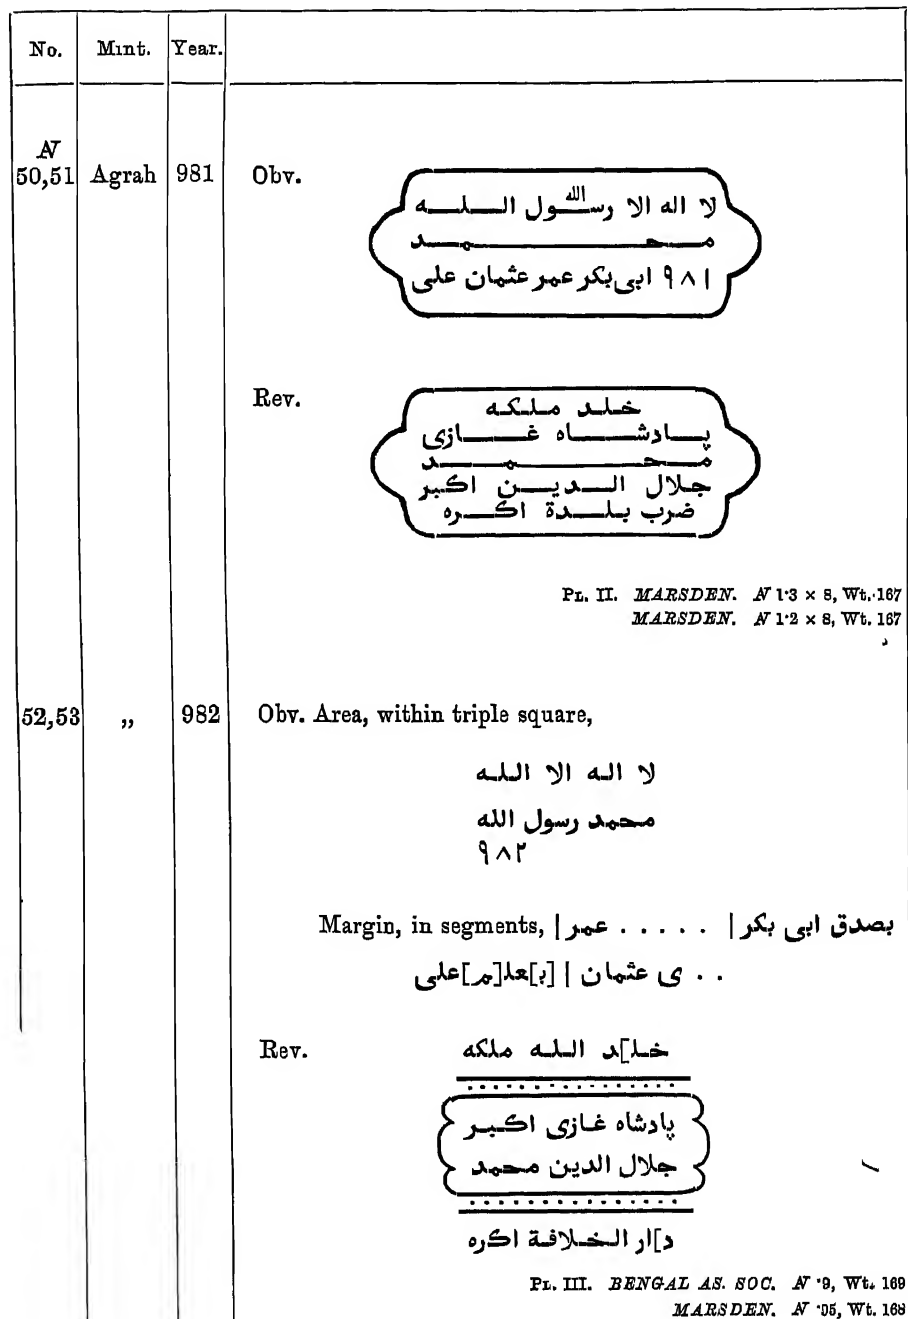 No. Mint. Year.
N
50,51 Agrah 981 Obv.
لا اله الا رسول الله الله
محمد
۹۸۱ ابی بکر عمر عثمان علی
Rev.
خلد ملکه
پادشاه غازی
محمد
جلال الدین اکبر
ضرب بلدة اکره
PL. II. MARSDEN. N 1·3 × 8, Wt. 167
MARSDEN. N 1·2 × 8, Wt. 167
52,53 „ 982 Obv. Area, within triple square,
لا اله الا الله
محمد رسول الله
۹۸۲
Margin, in segments, بصدق ابی بکر | . . . . . عمر |
. . ی عثمان | [ب]عل[م]علی
Rev.
خل]د الله ملکه
پادشاه غازی اکبر
جلال الدین محمد
د]ار الخلافة اکره
PL. III. BENGAL AS. SOC. N ·9, Wt. 169
MARSDEN. N ·05, Wt. 168